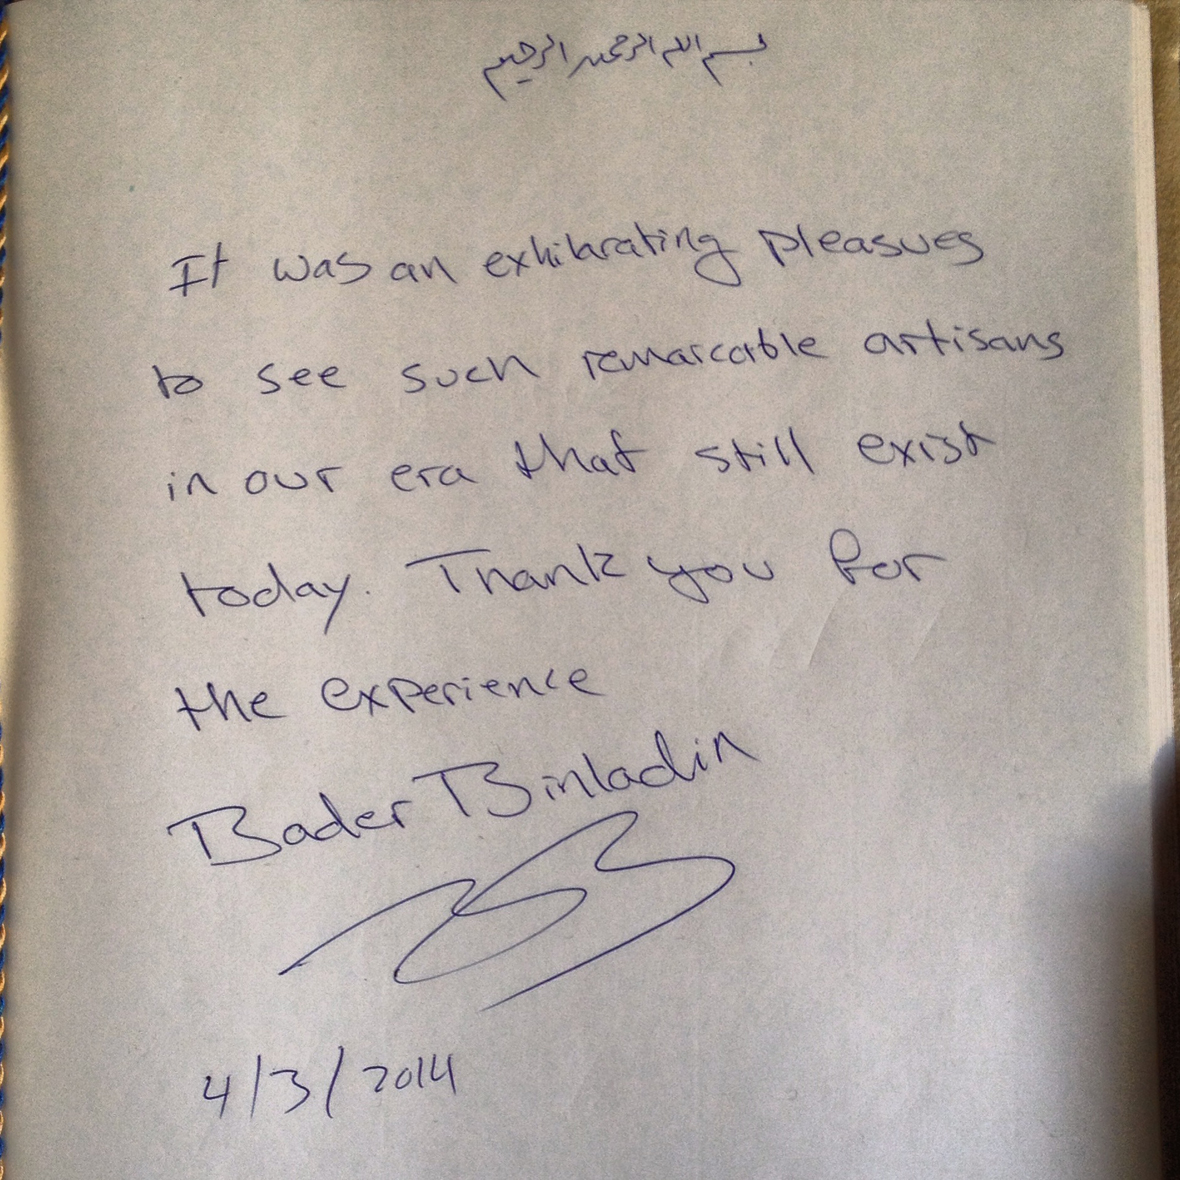 بسم الله الرحمن الرحيم
It was an exhilarating pleasues
to see such remarcable artisans
in our era that still exist
today. Thank you for
the experience
Bader Binladin
4/3/2014